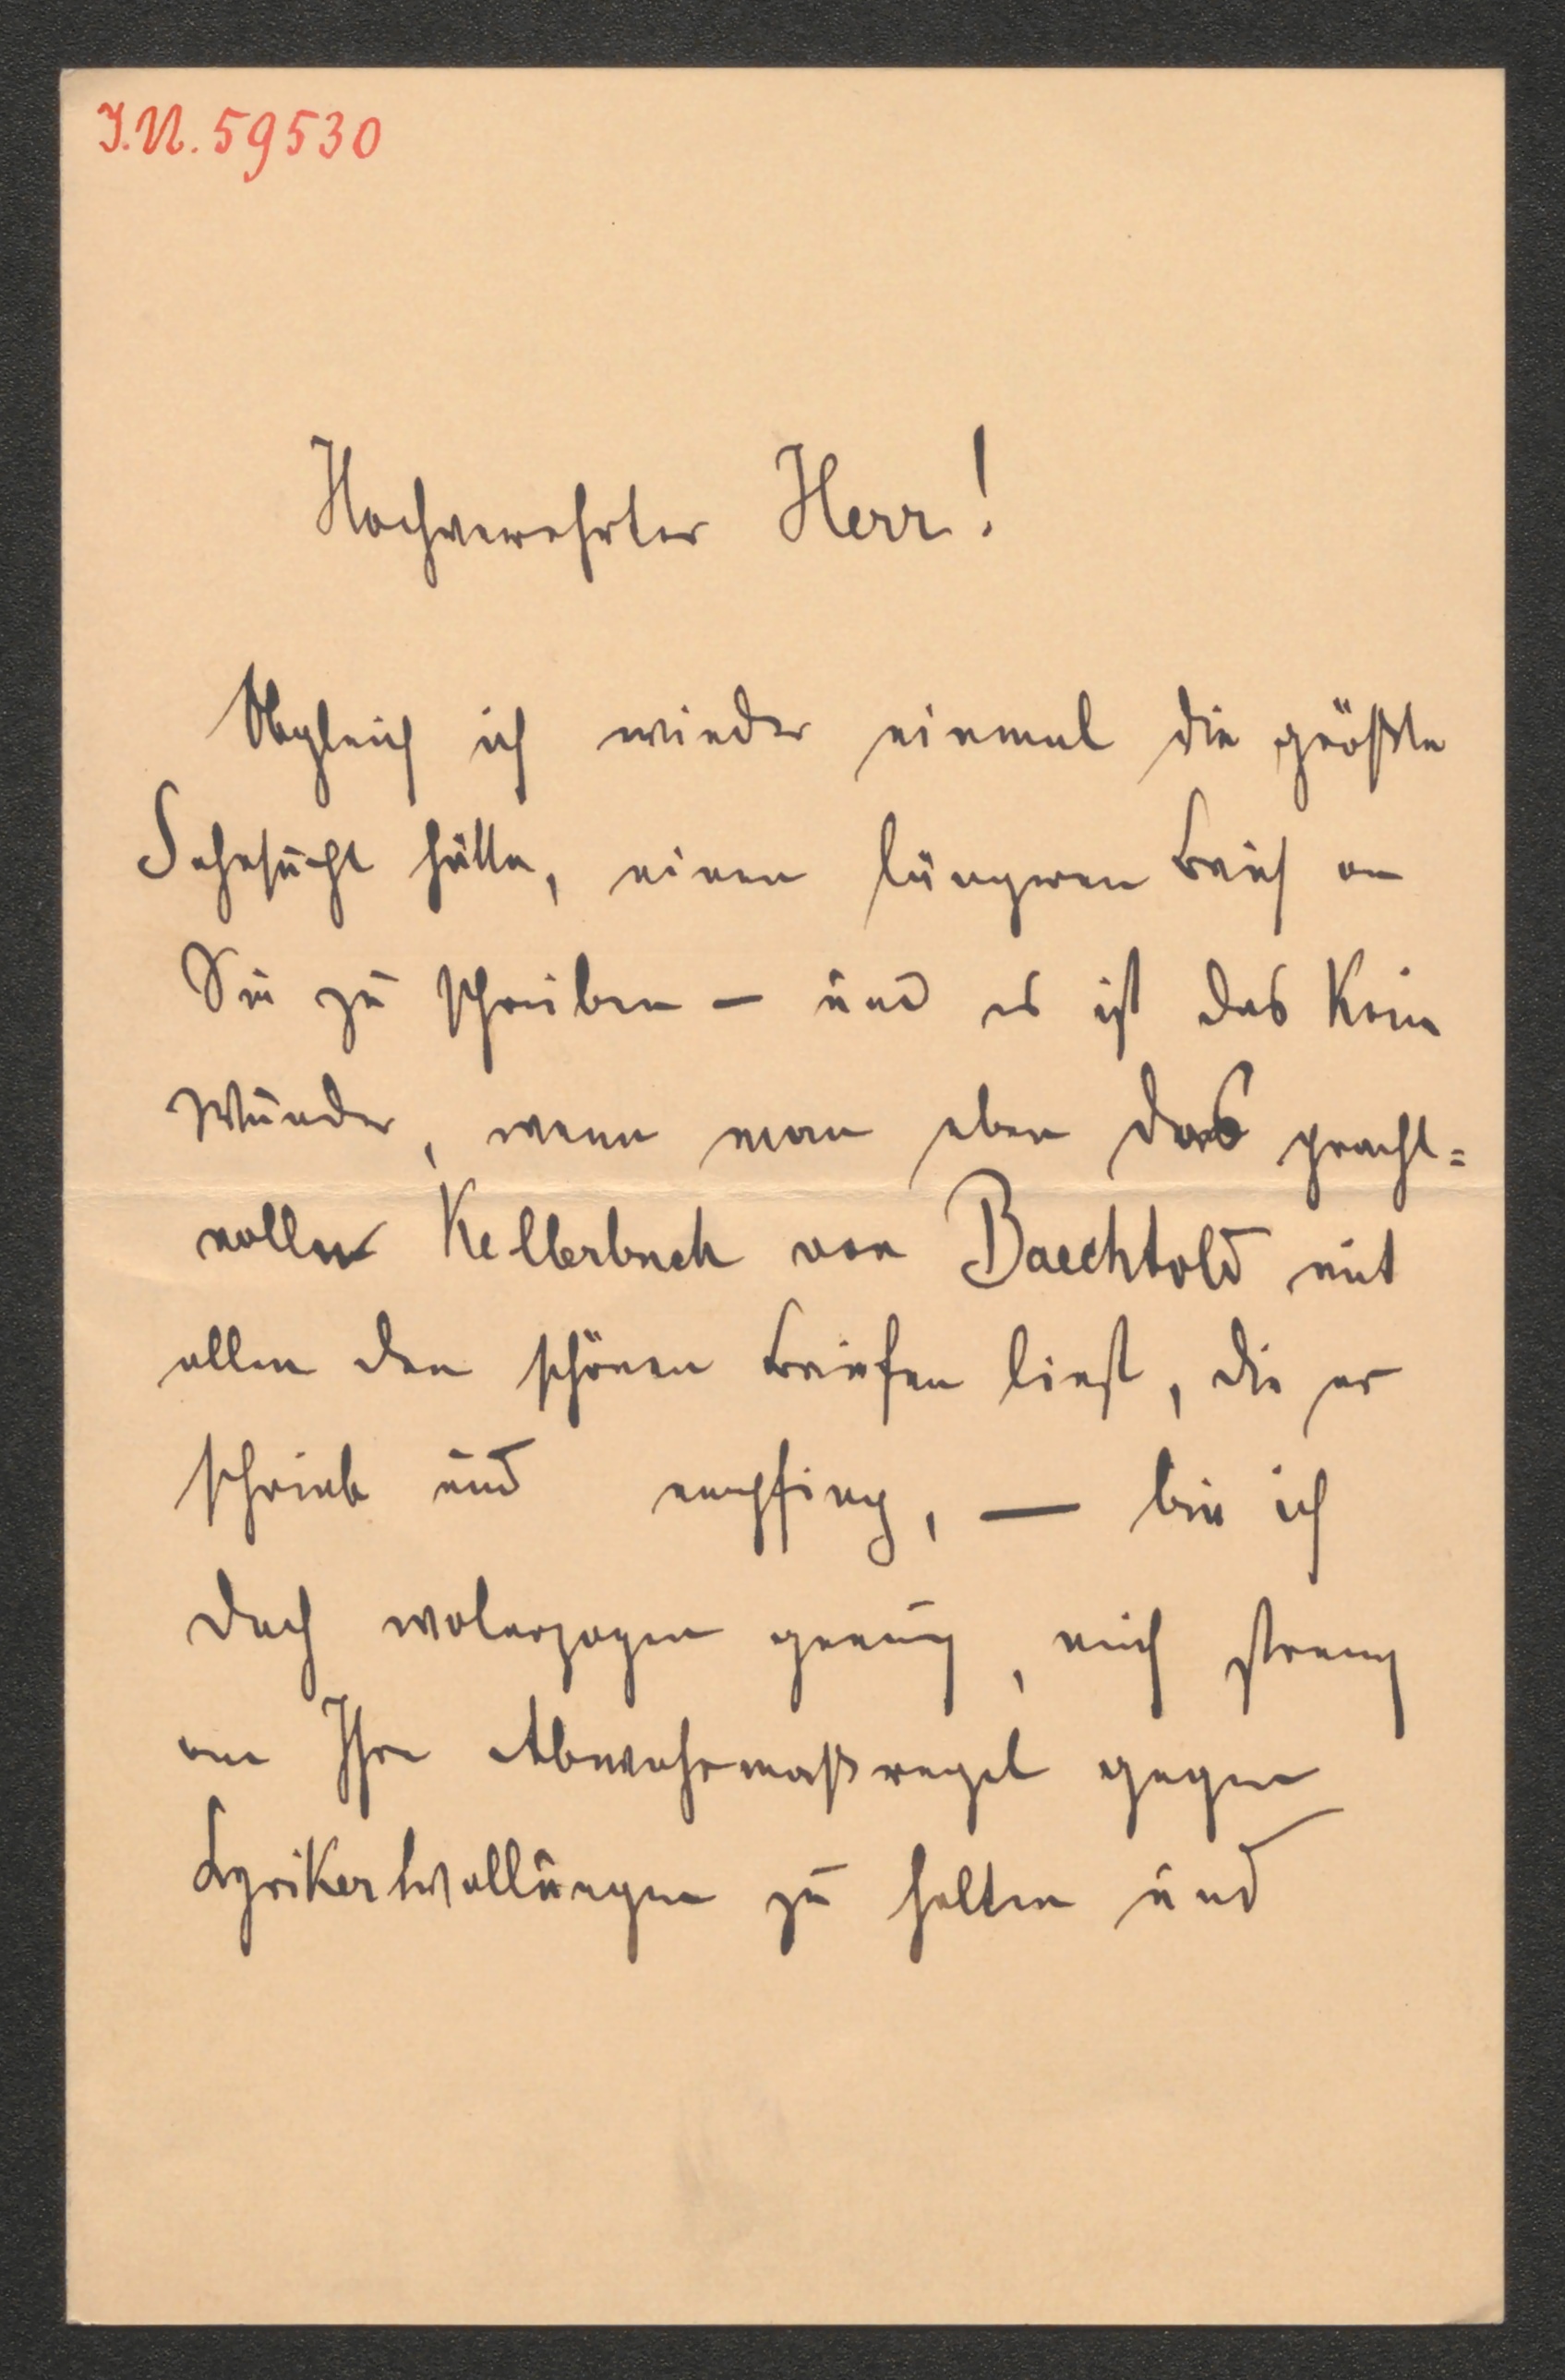 J.N. 59530
Hochverehrter Herr!
Obgleich ich wieder einmal die größte
Sehnsucht hätte, einen längeren Brief an
Sie zu schreiben – und es ist das kein
Wunder, wenn man eben das pracht=
volle Kellerbuch von Baechtold mit
allen den schönen Briefen liest, die er
schrieb und empfing, — bin ich
doch wolerzogen genug, mich streng
an Ihre Abwehrmaßregel gegen
Lyrikerwallungen zu halten und